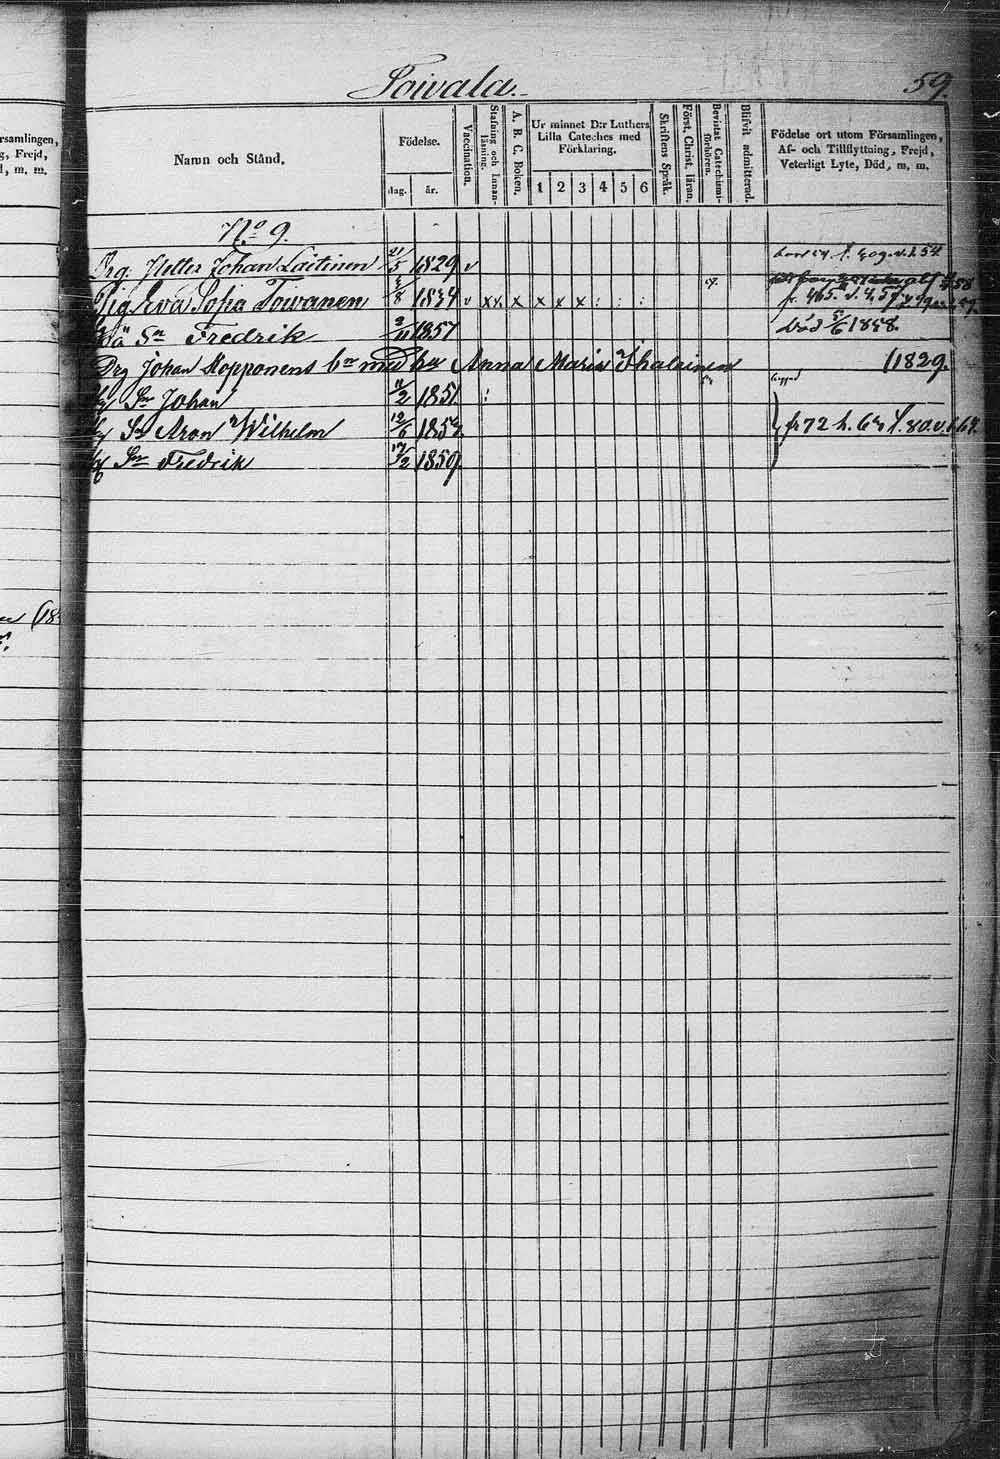 Toivala.
59.
rsamlingen,
g, Frejd,
d, m. m.
Namn och Stånd.
Födelse.
dag.
år.
Vaccination.
Stafning och Innan-
läsning.
A. B. C. Boken.
Ur minnet D:r Luthers
Lilla Cateches med
Förklaring.
1 2 3 4 5 6
Skriftens Språk.
Först, Christ, läran.
Bevistat Catechismi-
förhören.
Blifvit admitterad.
Födelse ort utom Församlingen,
Af- och Tillflyttning, Frejd,
Veterligt Lyte, Död, m, m.
No 9.
Drg: Petter Johan Laitinen 21/5 1829 v
Pig. Eva Sofia Toivanen /8 1834 v xx. x x x x : : :
Oä Sn Fredrik 2/11 1857 död /6 1858.
Drg Johan Kopponens bn med hu Anna Maria Ihalainen (1829.
Sn Johan 11/2 1851 :
Sn Aron Wilhelm 12/6 185
fr 72 h.
Sn Fredrik 17/2 1859
(18